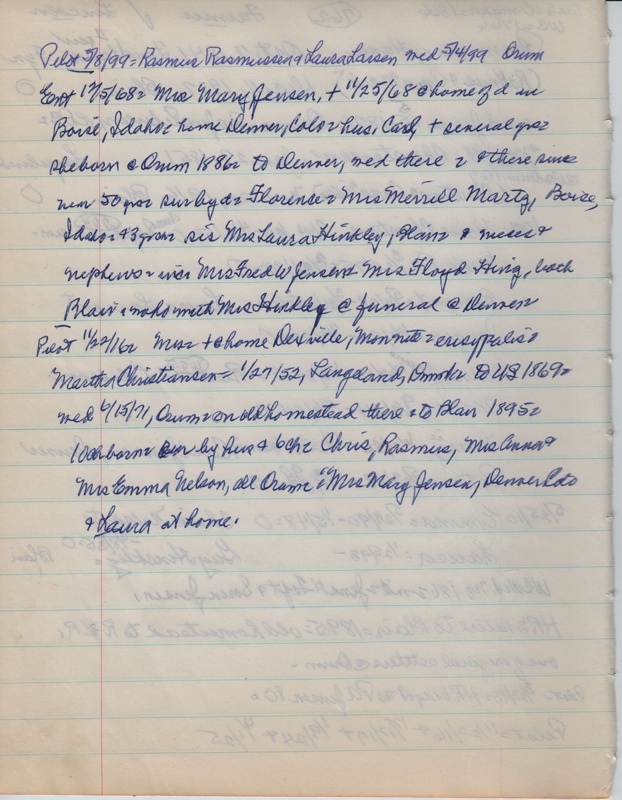 Pilot 5/8/99 = Rasmus Rasmussen & Laura Larsen wed 5/4/99 Orum
Ent 12/5/68 = Mrs Mary Jensen, + 11/25/68 @ home of d in
Boise, Idaho = home Denver, Colo = hus, Carl, + several yrs =
she born @ Orum 1886 = to Denver, wed there = & there since
near 50 yrs = sur by d = Florence = Mrs Merrill Martz, Boise,
Idaho = & 3 gr = sis Mrs Laura Hinkley, Blair & nieces &
nephews = inc Mrs Fred W Jensen & Mrs Floyd King, both
Blair = who with Mrs Hinkley @ funeral @ Denver =
Pilot 11/22/16 = Mrs = + @ home = erisypalis =
Martha Christiansen = 1/27/52, Langeland, Dnmrk = to US 1869 =
wed 4/15/71, Orum = on old homestead there = to Blair 1895 =
10 ch born = sur by hus & 6 ch = Chris, Rasmus, Mrs Anna &
Mrs Emma Nelson, all Orum = Mrs Mary Jensen, Denver Colo
& Laura at home.